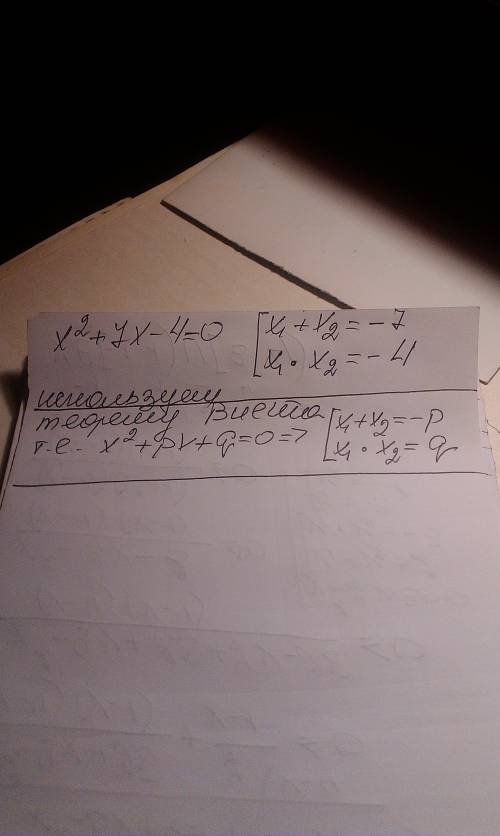 x²+7x-4=0 [x₁+x₂=-7
x₁·x₂=-4
используем
теорему Виета
т.е. x²+px+q=0=> [x₁+x₂=-p
x₁·x₂=q